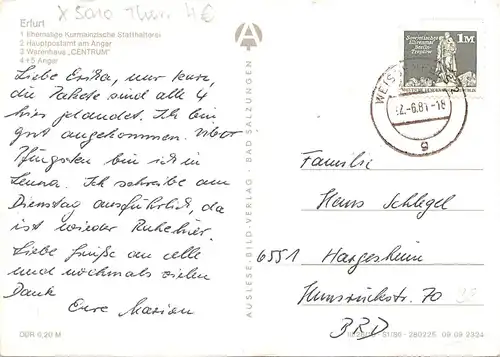 X 5010 Thür. 4€
Erfurt
1 Ehemalige Kurmainzische Statthalterei
2 Hauptpostamt am Anger
3 Warenhaus „CENTRUM"
4+5 Anger
Liebe Erika, nur kurz,
die Pakete sind alle 4
hier gelandet. Ich bin
gut angekommen. Über
Pfingsten bin ich in
Leuna. Ich schreibe am
Dienstag ausführlich, da
ist wieder Ruhe hier.
Liebe Grüße an alle
und nochmals vielen
Dank
Eure Marion
DDR 0,20 M
A
AUSLESE-BILD-VERLAG · BAD SALZUNGEN
Sowjetisches
Ehrenmal
Berlin-
Treptow
1M
81
Familie
Hans Schlegel
6551 Hargesheim
Hunsrückstr. 70
BRD
280225 09 09 2324